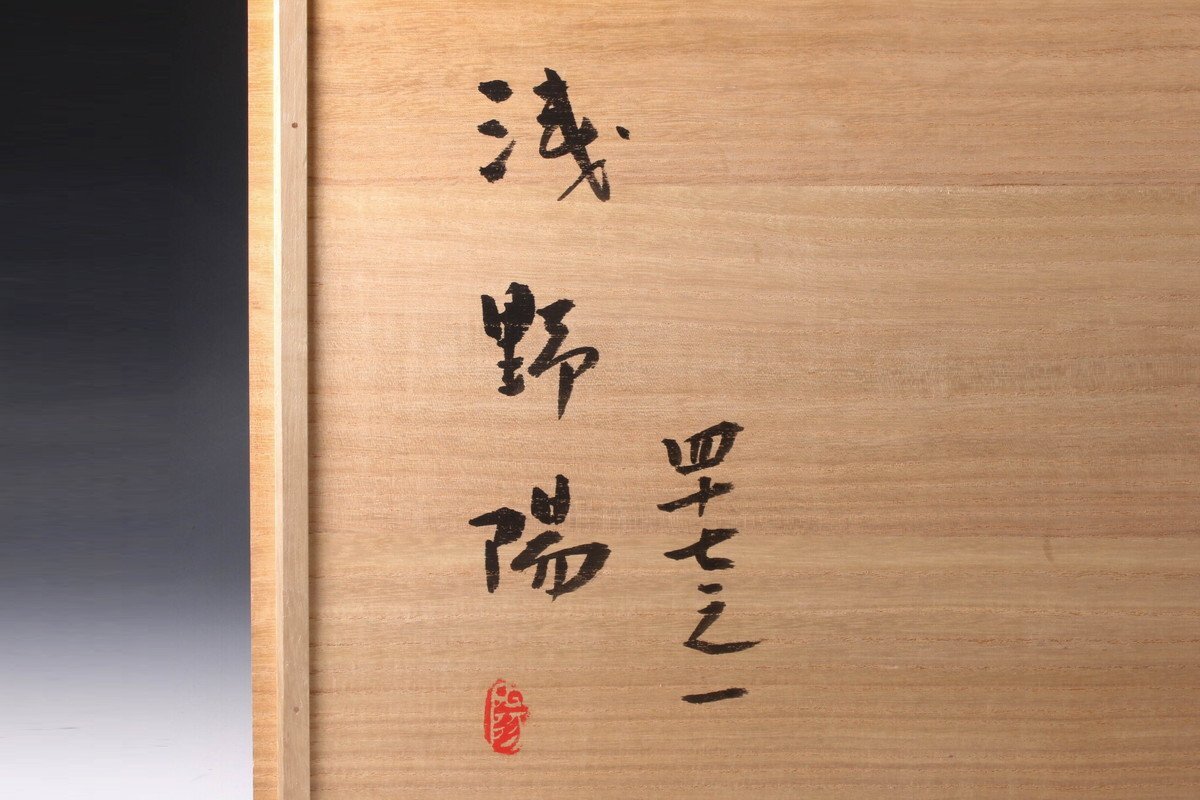 四十七之一
浅野陽